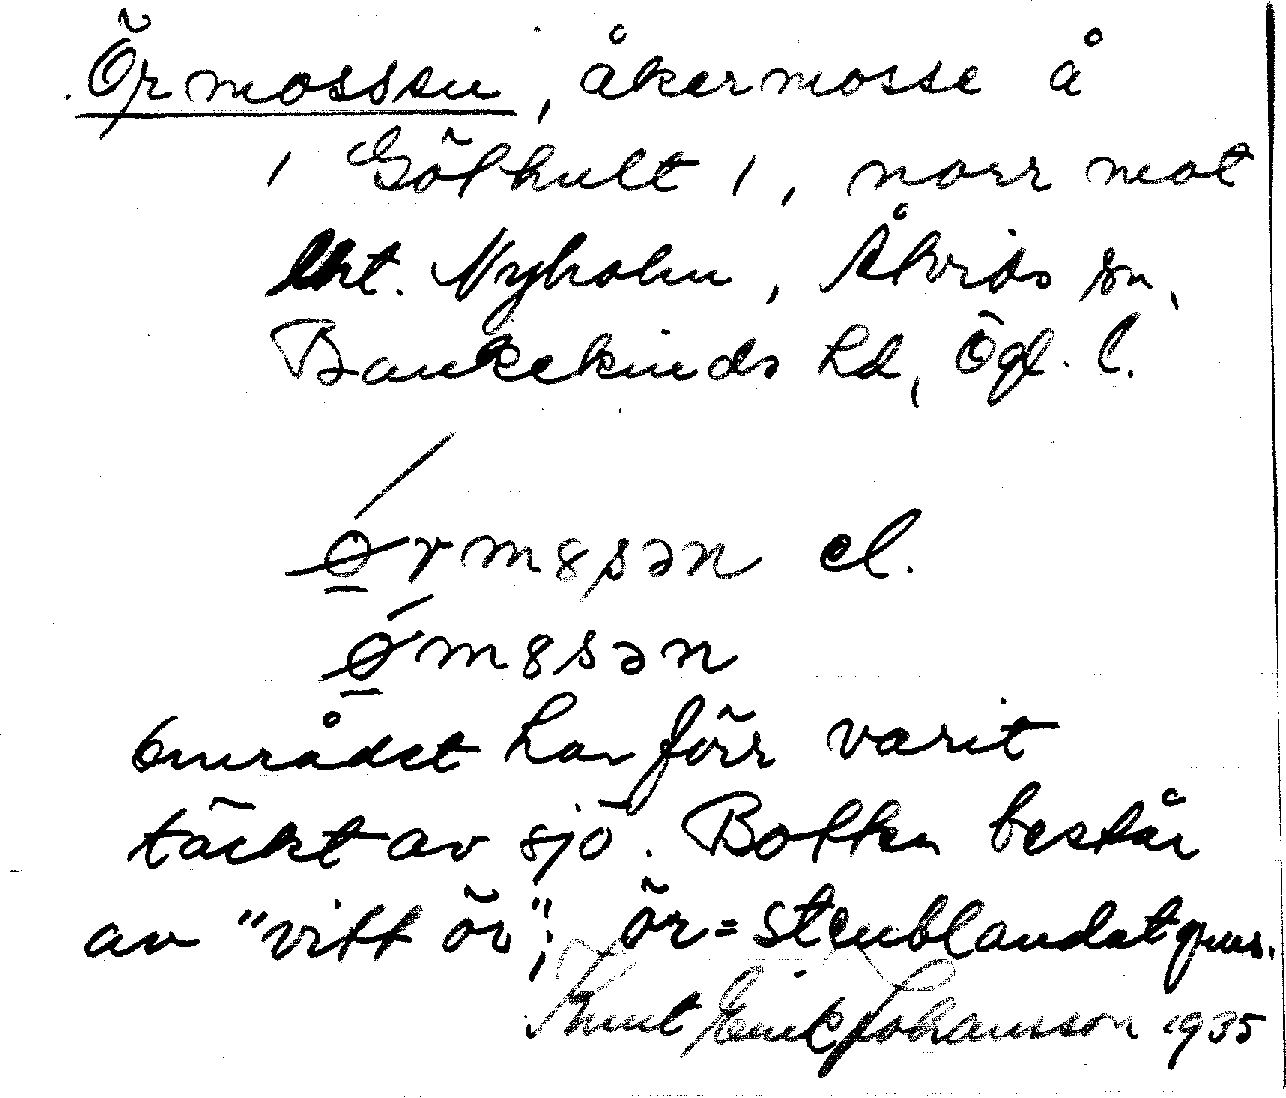 Örmossen, åkermosse å
/ Göthult /, norr mot
lht. Nyholm, Åtvids sn,
Bankekinds hd, Ögl. l.
ørm8sən el.
øm8sən
området har förr varit
täckt av sjö. Botten består
av "vitt ör"; ör = stenblandat grus.
Knut Erik Johansson 1935